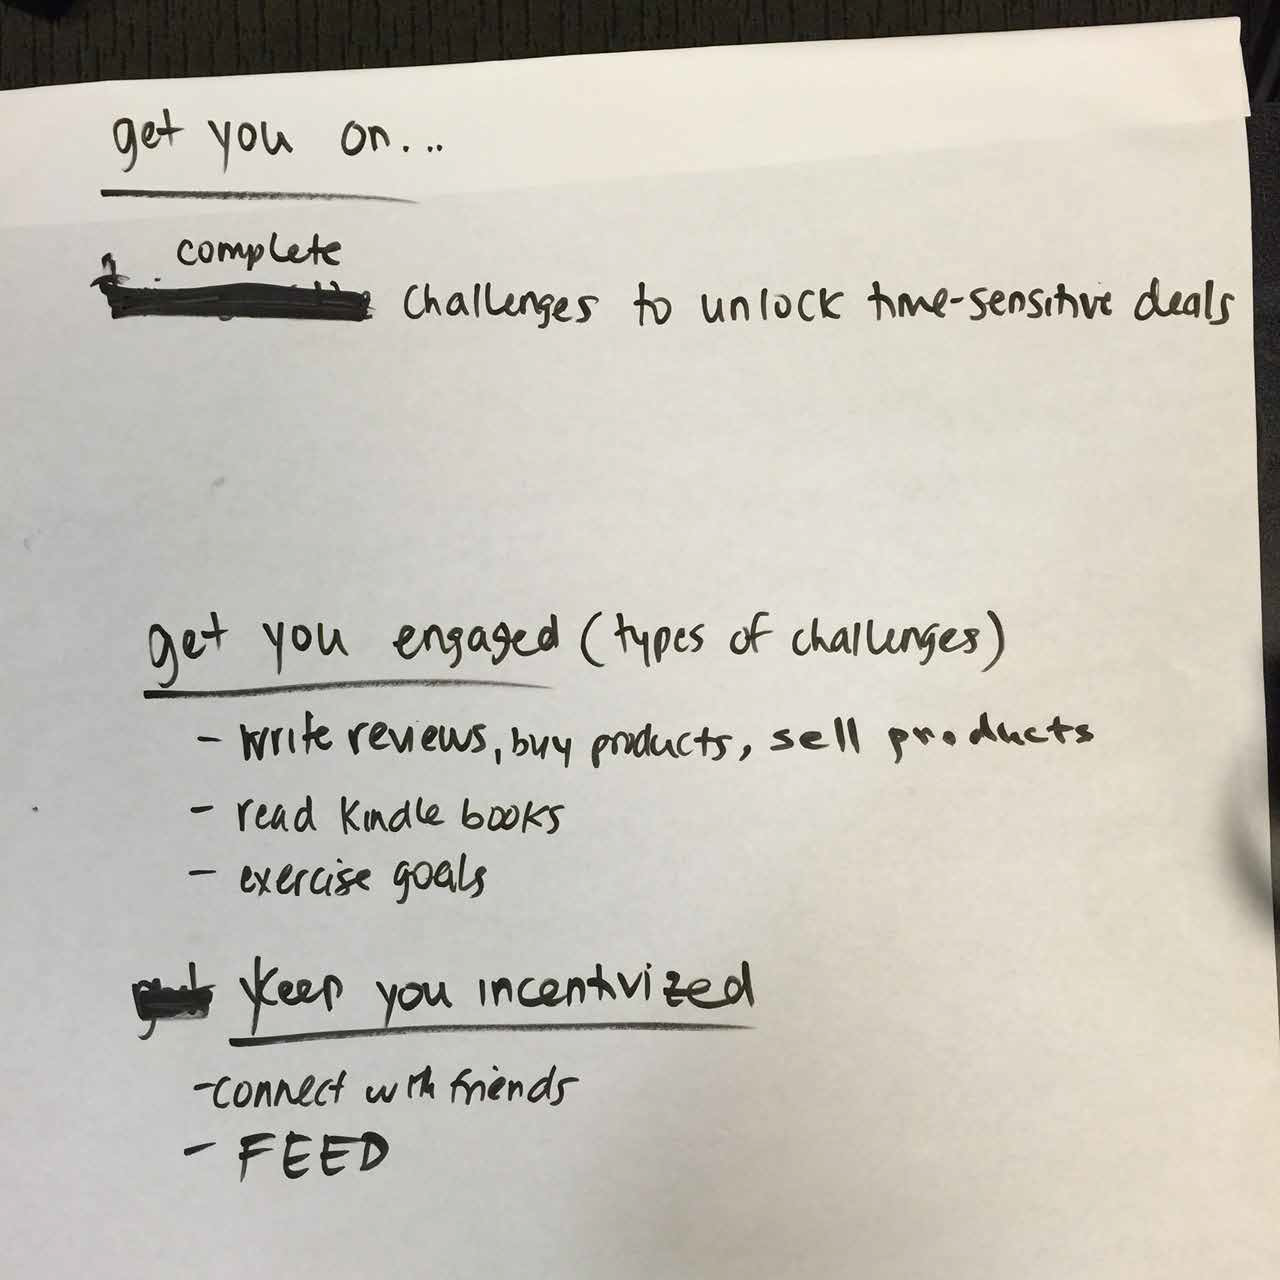 get you on...
complete
challenges to unlock time-sensitive deals
get you engaged (types of challenges)
- write reviews, buy products, sell products
- read kindle books
- exercise goals
keep you incentivized
-connect with friends
- FEED